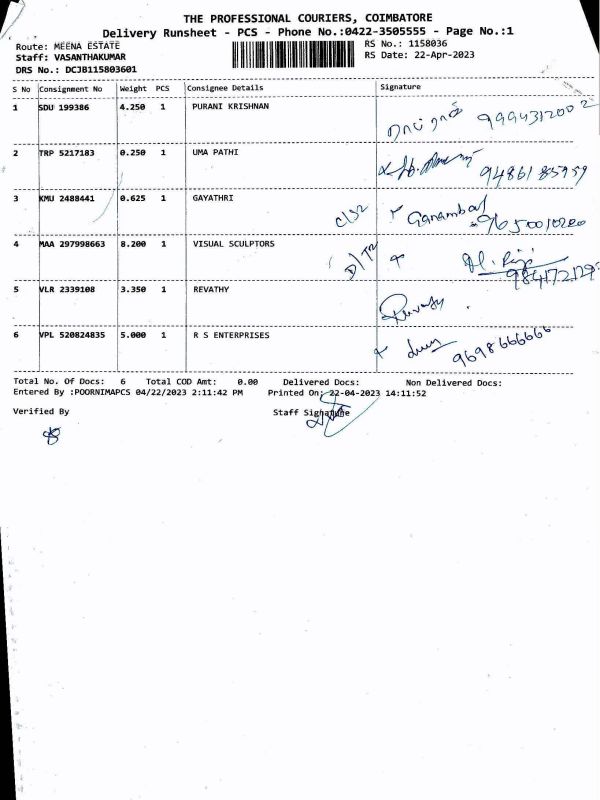 THE PROFESSIONAL COURIERS, COIMBATORE
Delivery Runsheet - PCS - Phone No.:0422-3505555 - Page No.:1
Route: MEENA ESTATE RS No.: 1158036
Staff: VASANTHAKUMAR RS Date: 22-Apr-2023
DRS No.: DCJB115803601
S No Consignment No Weight PCS Consignee Details Signature
1 SDU 199386 4.250 1 PURANI KRISHNAN
9994312002
2 TRP 5217183 0.250 1 UMA PATHI
9486185959
3 KMU 2488441 0.625 1 GAYATHRI
C/S2 Ganambal 9650010200
4 MAA 297998663 8.200 1 VISUAL SCULPTORS
D/T2
5 VLR 2339108 3.350 1 REVATHY
Revathy
6 VPL 520824835 5.000 1 R S ENTERPRISES
9698666666
Total No. Of Docs: 6 Total COD Amt: 0.00 Delivered Docs: Non Delivered Docs:
Entered By :POORNIMAPCS 04/22/2023 2:11:42 PM Printed On: 22-04-2023 14:11:52
Verified By Staff Signature